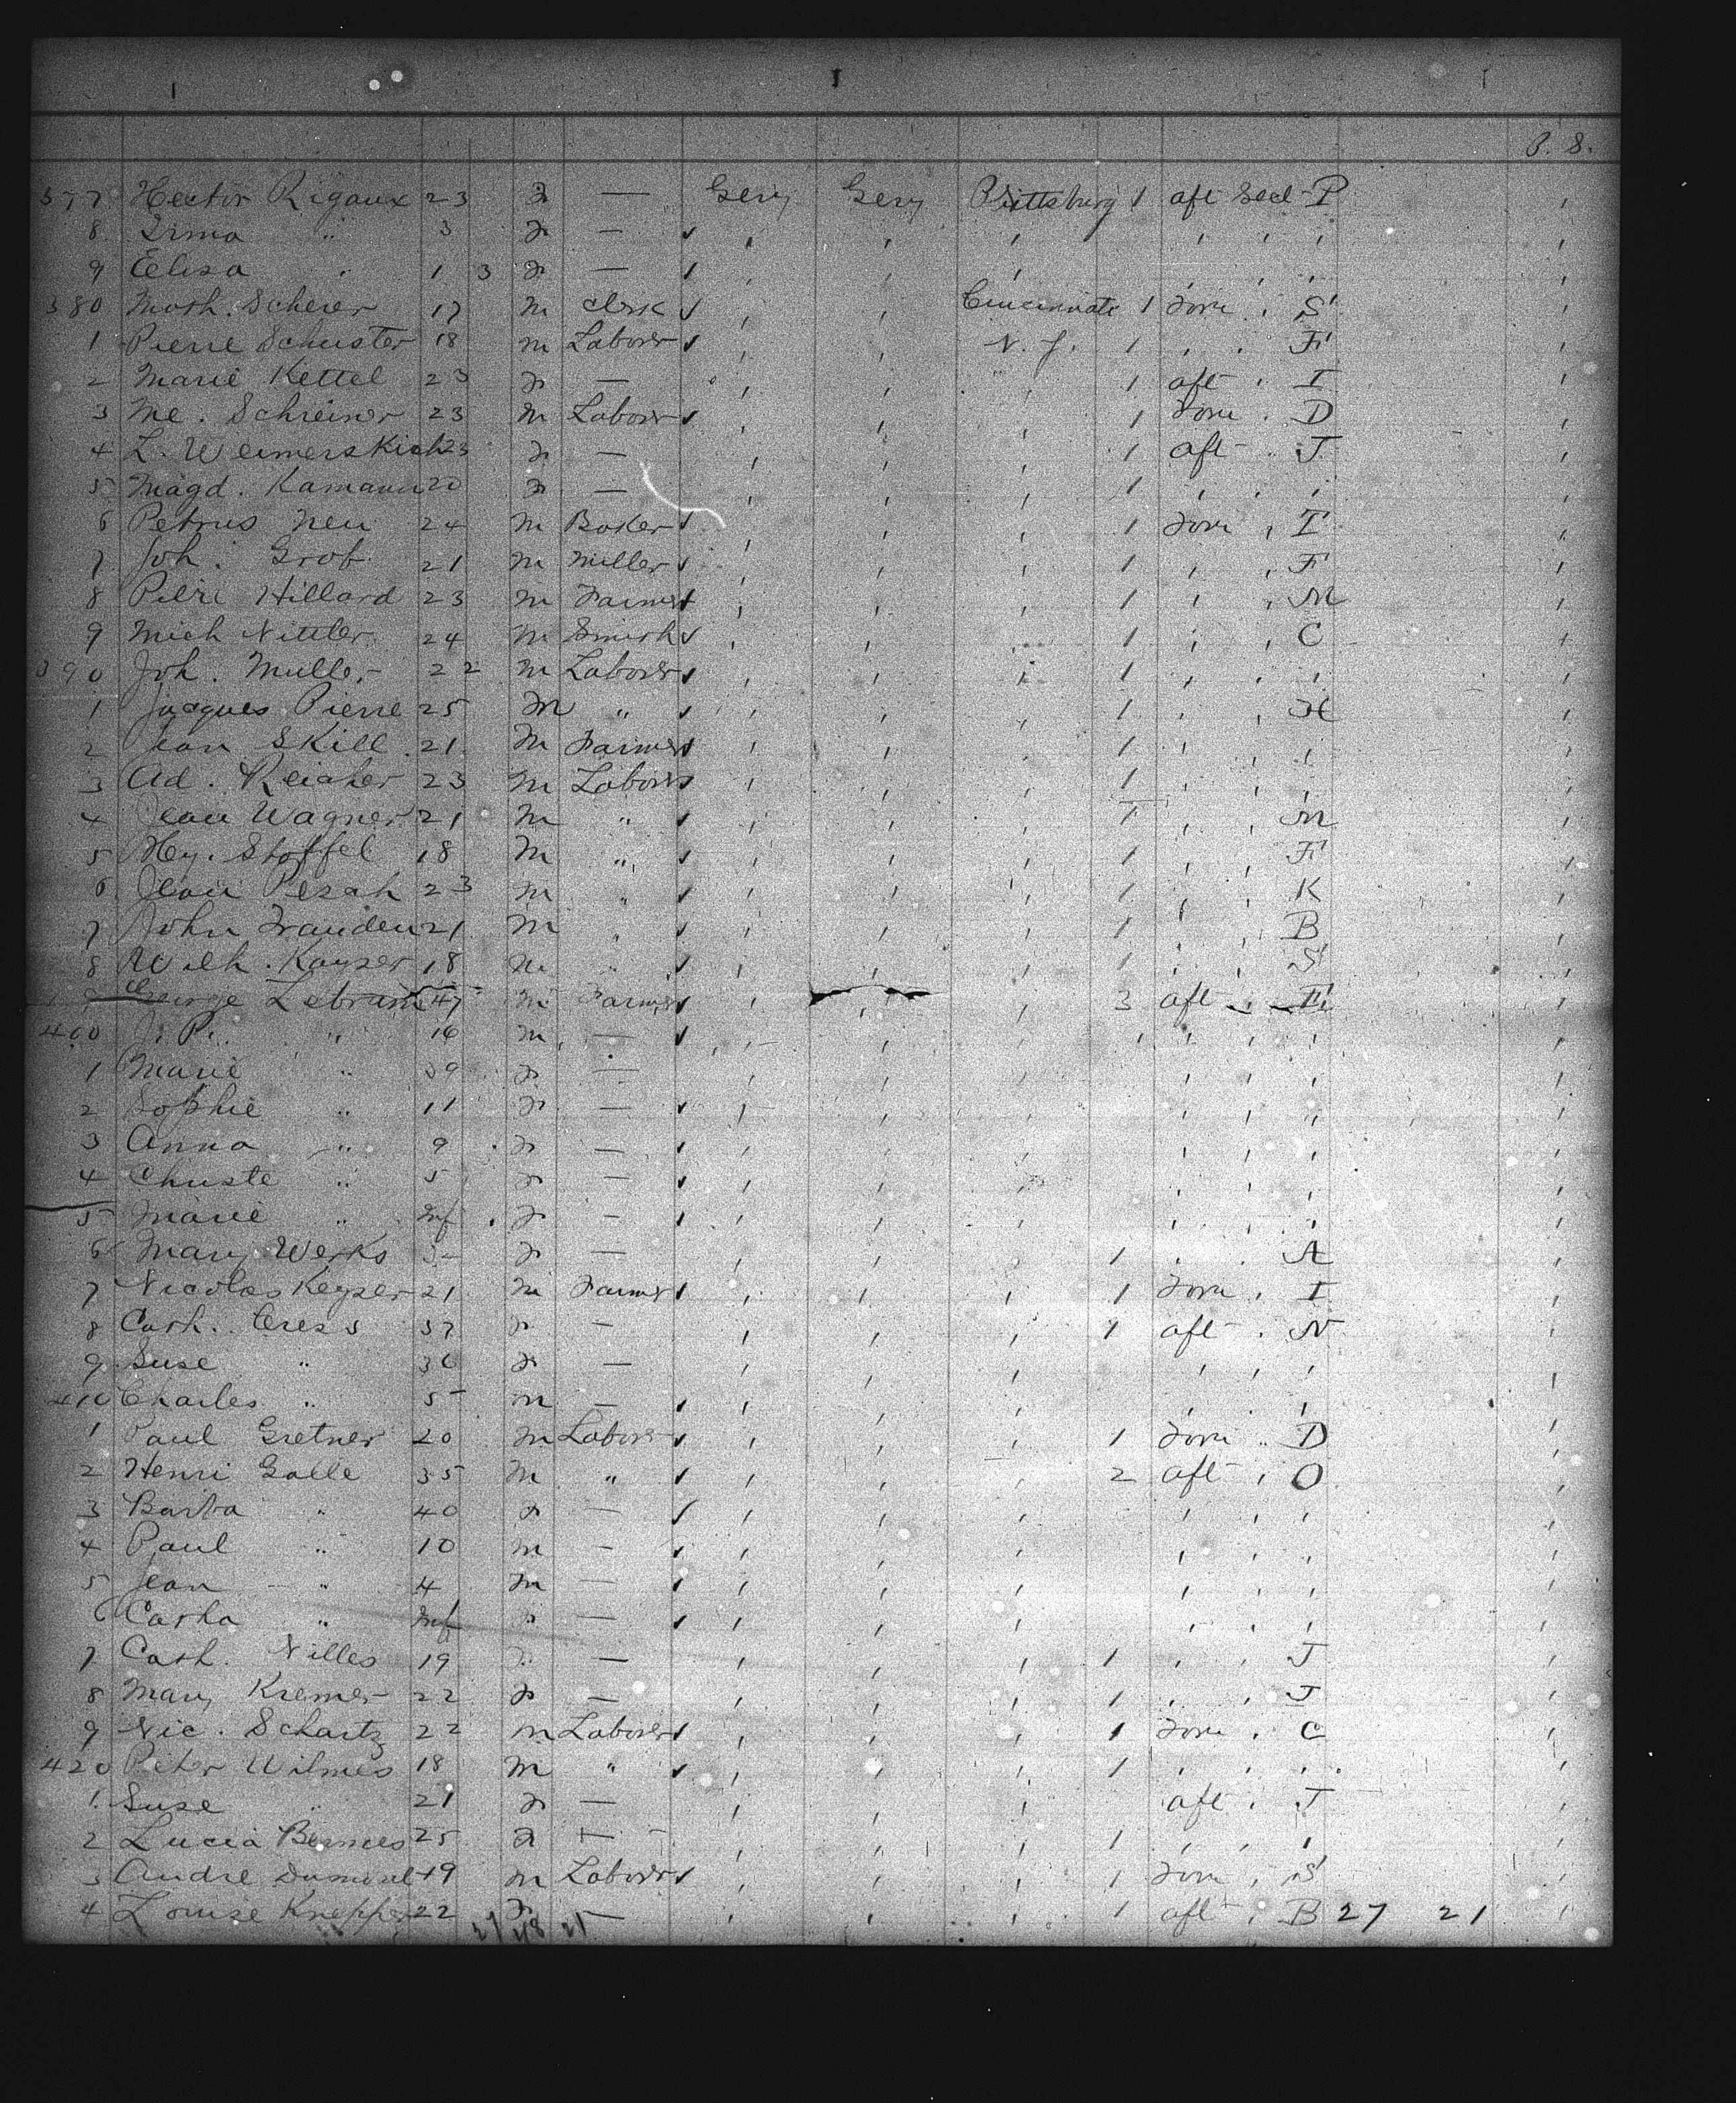 P. 8.
377 Hector Rigaux 23 F — Gery Gery Pittsburg 1 aft deck P
8 Irma " 3 F — ✓ , , , , , ,
9 Elisa " 1 3 F — ✓ , , , , , ,
380 Math. Scherer 17 m Clerk ✓ , , Cincinnati 1 Forw , S
1 Pierre Schuster 18 m Laborer ✓ , , N. J. 1 , , F
2 Marie Kettel 23 F — , , " 1 aft , I
3 Me. Schreiner 23 m Laborer ✓ , , , 1 Forw , D
4 L. Weimerskich 23 F — , , , 1 aft " J
5 Magd. Kamann 20 F — , , , 1 , , ,
6 Petrus Neu 24 m Baker ✓ , , , 1 Forw , I
7 Joh. Grob 21 m Miller ✓ , , , 1 , , F
8 Hillard 23 m Farmer ✓ , , , 1 , , M
9 Mich Nittler 24 m Smith ✓ , , , 1 , , C
390 Joh. Muller 22 m Laborer ✓ , , , 1 , , ,
1 Jacques Pierre 25 m " ✓ , , , 1 , , H
2 Jean Skill 21 m Farmer ✓ , , , 1 , , ,
3 Ad. 23 m Laborer ✓ , , , 1 , , ,
4 Jean Wagner 21 m " ✓ , , , 1 , , M
5 Hy. Stoffel 18 m " ✓ , , , 1 , , F
6 Jean 23 m " ✓ , , , 1 , , K
7 John 21 m " ✓ , , , 1 , , B
8 Wilh. Kayser 18 m " ✓ , , , 1 , , S
9 George Lebrun 47 m Farmer ✓ , , , 3 aft
400 J. P. " 16 m — ✓ , , , , , ,
1 Marie " 39 F — , , , , , ,
2 Sophie " 11 F — ✓ , , , , , ,
3 Anna " 9 F — ✓ , , , , , ,
4 Christe " 5 F — ✓ , , , , , ,
5 Marie " Inf F — ✓ , , , , , ,
6 Mary Werks F — , , , 1 , , A
7 Nicolas Keyser 21 m Farmer ✓ , , , 1 Forw , I
8 Cath. Cress 37 F — , , , 1 aft , N
9 Suse " 36 F — , , , , , ,
410 Charles " 5 m — ✓ , , , , , ,
1 Paul Gretner 20 m Laborer ✓ , , , 1 Forw " D
2 Henri Galle 35 m " ✓ , , , 2 aft , O
3 Barba " 40 F — ✓ , , , , , ,
4 Paul " 10 m — ✓ , , , , , ,
5 Jean " 4 m — ✓ , , , , , ,
6 Catha " Inf F — ✓ , , , , , ,
7 Cath. Nilles 19 F — , , , 1 , , J
8 Mary Kremer 22 F — , , , 1 , , J
9 Nic. Schartz 22 m Laborer ✓ , , , 1 Forw , C
420 Peter Wilmes 18 m " ✓ , , , 1 , , ,
1 Suse " 21 F — , , , aft , J
2 Lucia 25 F — , , , 1 , , ,
3 Andre 19 m Laborer ✓ , , , 1 Forw , S
4 Louise Knepper 22 F — , , , 1 aft , B 27 21
27 48 21